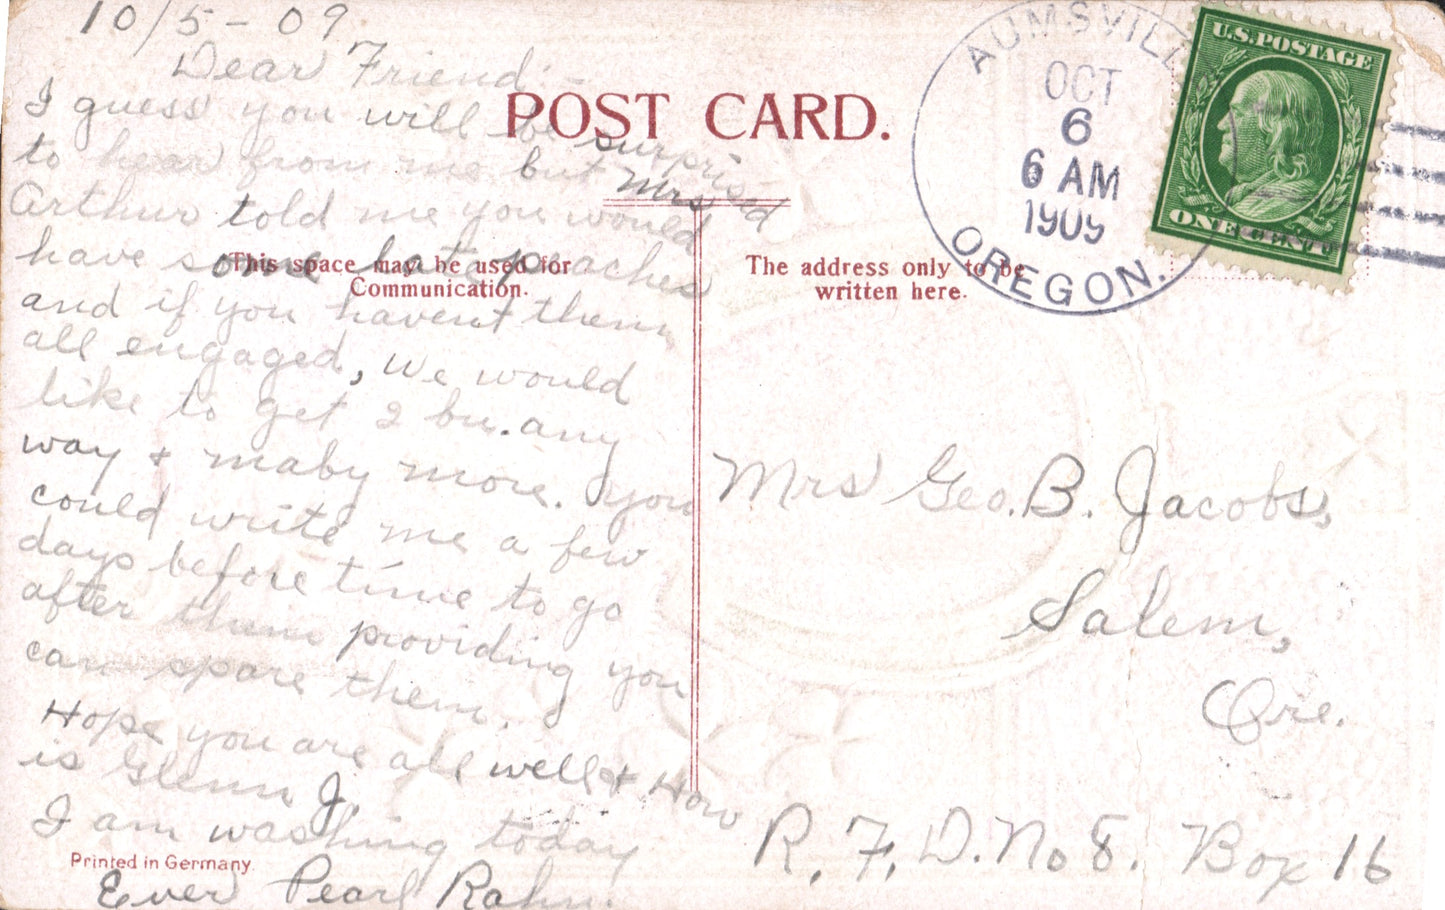 10/5-09
Dear Friend-
I guess you will be surprised
to hear from me but Mrs
Arthur told me you would
have some late peaches
and if you havent them
all engaged, we would
like to get 2 bu. any
way + maby more. You
could write me a few
days before time to go
after them providing you
can spare them.
Hope you are all well + How
is Glenn J.
I am washing today
Ever Pearl Rahn.
POST CARD.
This space may be used for
Communication.
The address only to be
written here.
Printed in Germany.
AUMSVILLE
OCT
6
6 AM
1909
OREGON.
U.S. POSTAGE
ONE CENT
Mrs Geo. B. Jacobs,
Salem,
Ore.
R. F. D. No 8. Box 16